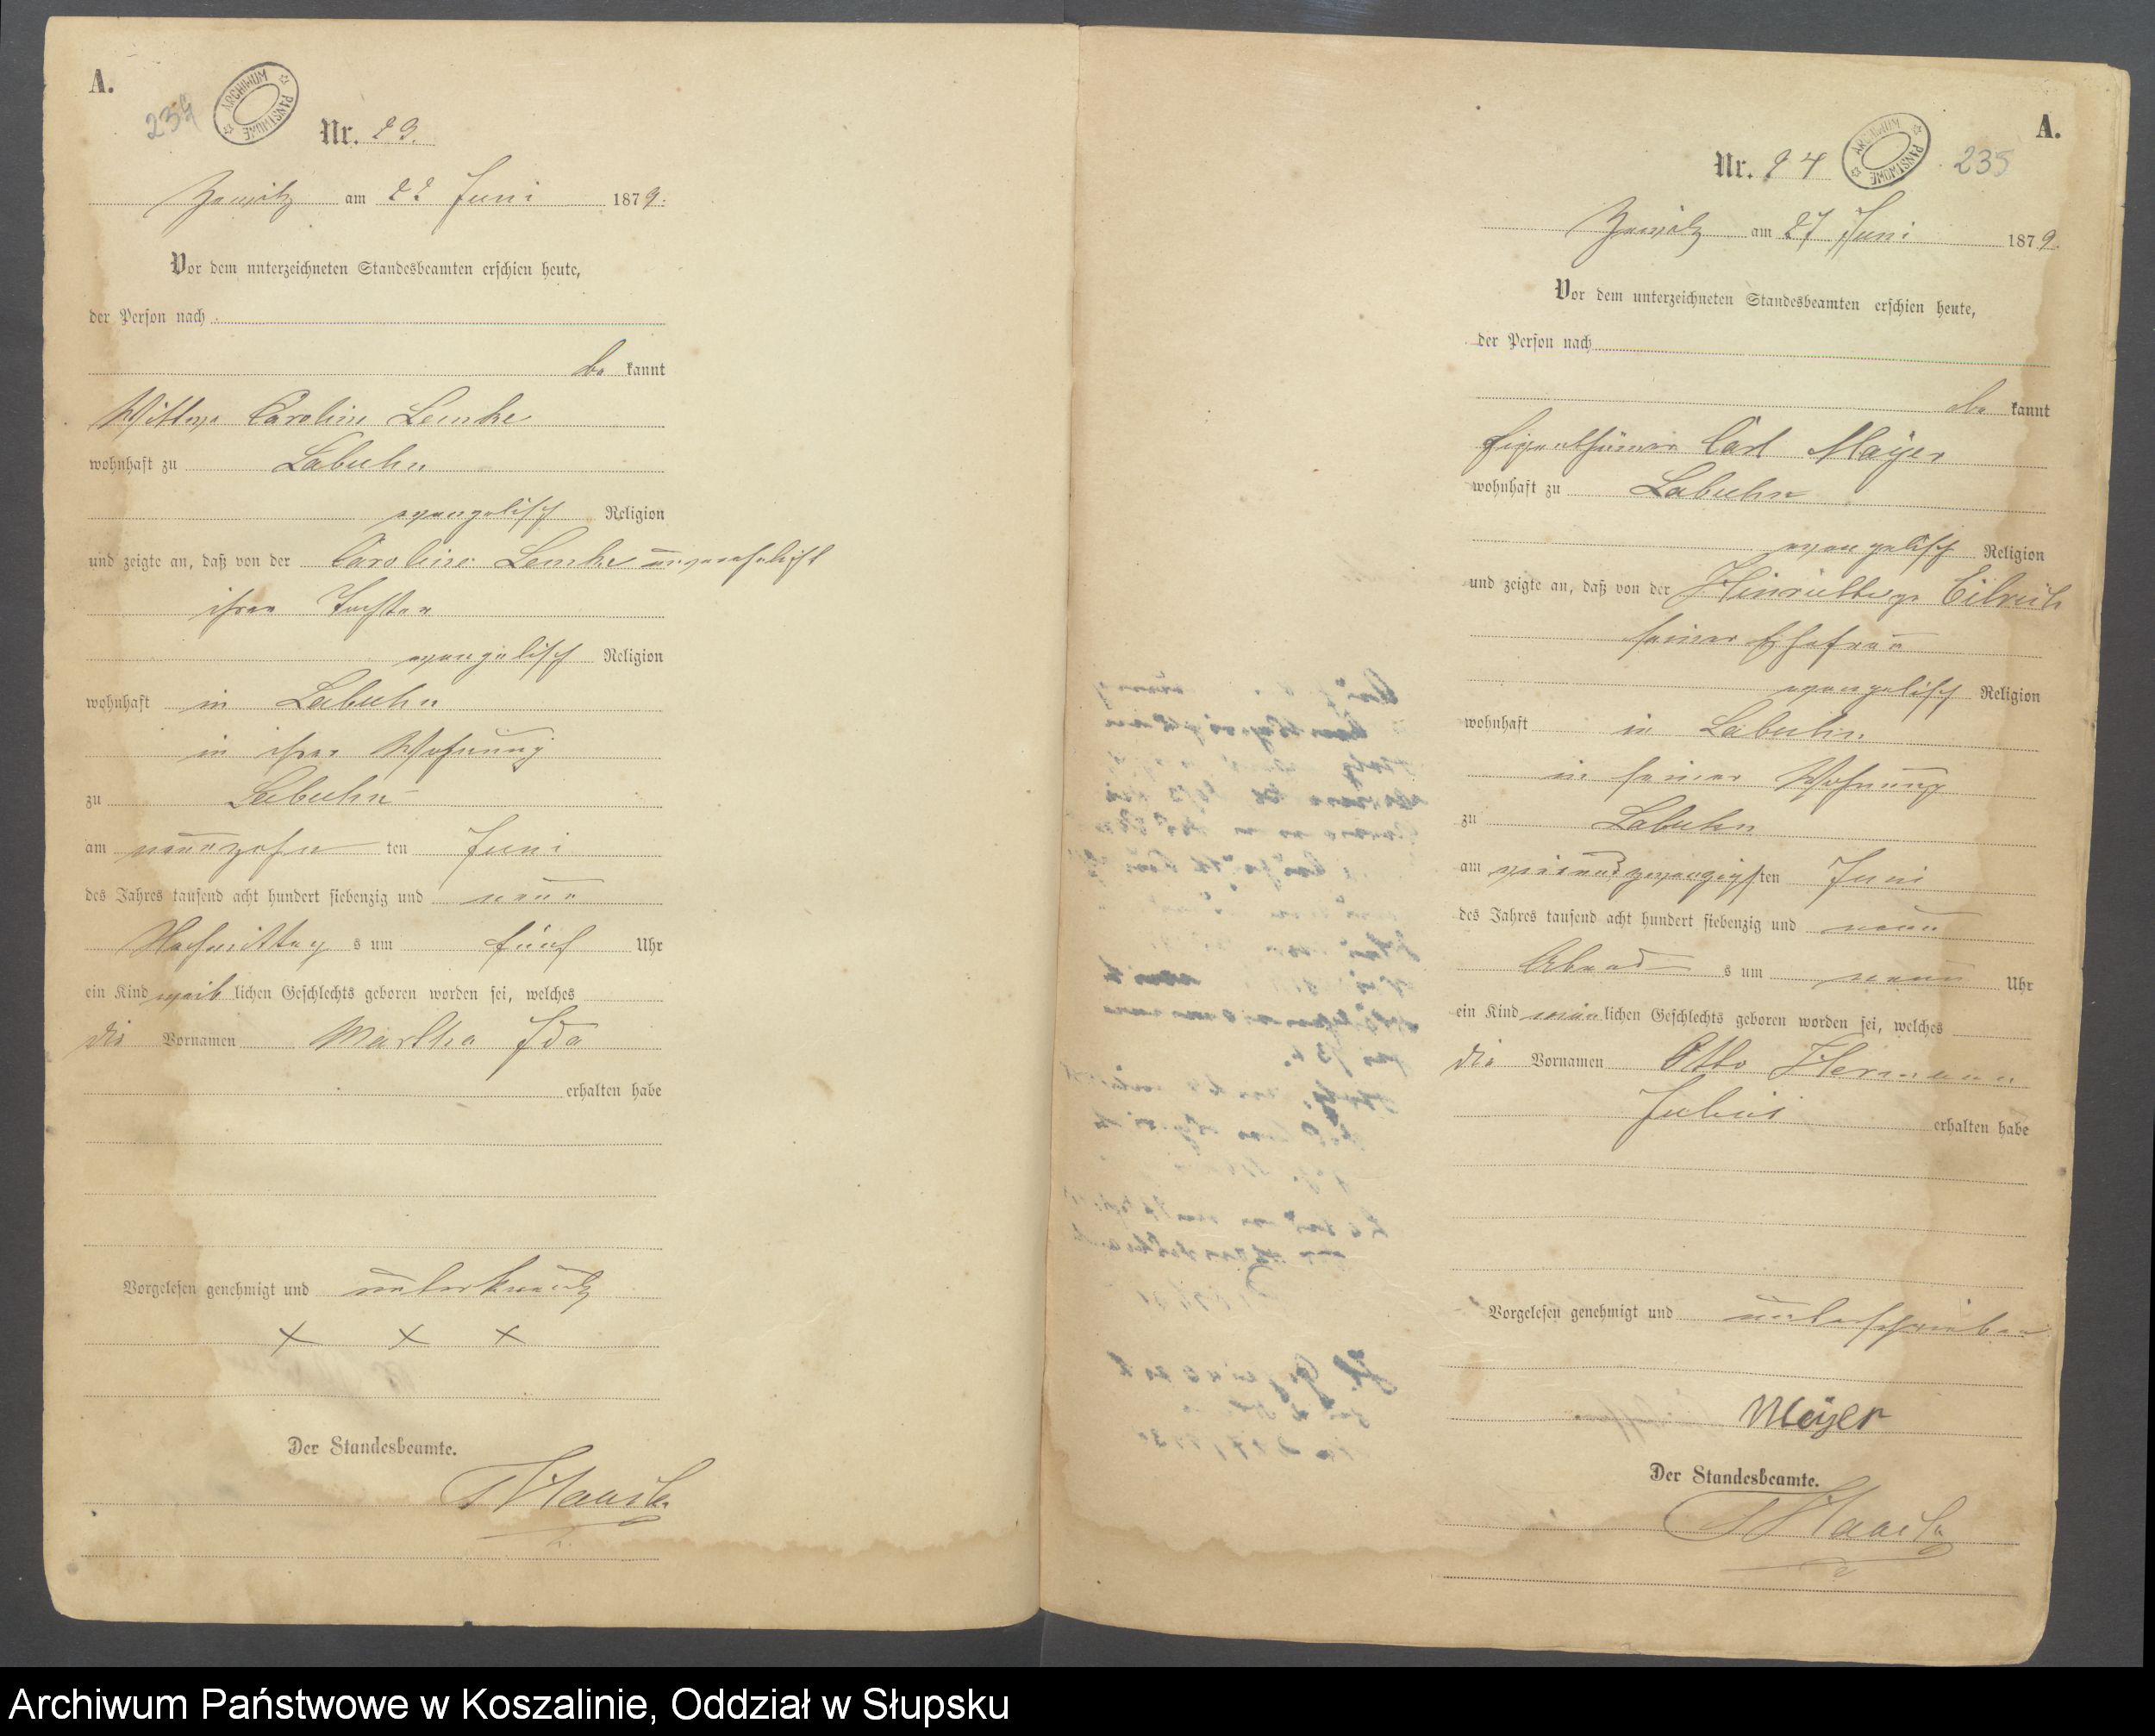 A.
234
ARCHIWUM PAŃSTWOWE
Nr. 23.
Zemitz am 22 Juni 1879.
Vor dem unterzeichneten Standesbeamten erschien heute,
der Person nach
be kannt
Wittwe Caroline Lemke
wohnhaft zu Labuhn
evangelisch Religion
und zeigte an, daß von der Caroline Lemke unverehelicht
ihrer Tochter
evangelisch Religion
wohnhaft in Labuhn
in ihrer Wohnung
zu Labuhn
am neunzehn ten Juni
des Jahres tausend acht hundert siebenzig und neun
Nachmittag s um fünf Uhr
ein Kind weib lichen Geschlechts geboren worden sei, welches
die Vornamen Martha Ida
erhalten habe
Vorgelesen genehmigt und unterkreutz
x x x
Der Standesbeamte.
A.
Nr. 24
ARCHIWUM PAŃSTWOWE
235
Zemitz am 27 Juni 1879.
Vor dem unterzeichneten Standesbeamten erschien heute,
der Person nach
be kannt
Eigenthümer Carl Mayer
wohnhaft zu Labuhn
evangelisch Religion
und zeigte an, daß von der Hinriette
seiner Ehefrau
evangelisch Religion
wohnhaft in Labuhn
in seiner Wohnung
zu Labuhn
am vierundzwanzigsten Juni
des Jahres tausend acht hundert siebenzig und neun
Abend s um neun Uhr
ein Kind män lichen Geschlechts geboren worden sei, welches
die Vornamen Otto Hermann
Julius erhalten habe
Vorgelesen genehmigt und unterschrieben
Meÿer
Der Standesbeamte.
Archiwum Państwowe w Koszalinie, Oddział w Słupsku